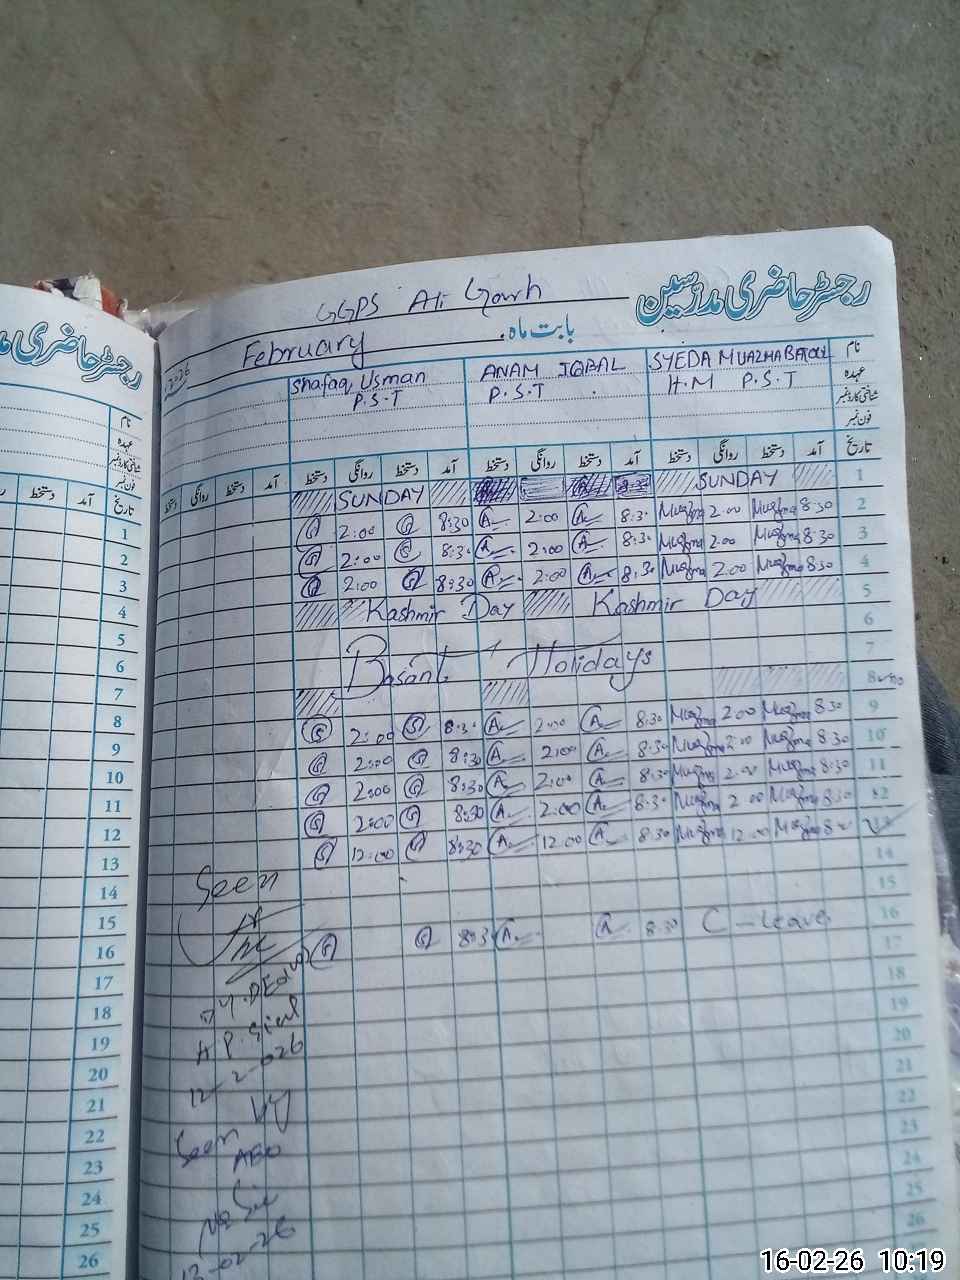 رجسٹر حاضری مدرسین
GGPS Ali Garh
بابت ماہ February
نام SYEDA MUAZMA BATOOL ANAM IQBAL Shafaq Usman
عہدہ H.M P.S.T P.S.T P.S.T
شناختی کارڈ نمبر
فون نمبر
تاریخ آمد دستخط روانگی دستخط آمد دستخط روانگی دستخط آمد دستخط روانگی دستخط آمد دستخط روانگی دستخط
1 SUNDAY SUNDAY
2 8:30 Muazma 2:00 Muazma 8:30 A 2:00 A 8:30 2:00
3 8:30 Muazma 2:00 Muazma 8:30 A 2:00 A 8:30 2:00
4 8:30 Muazma 2:00 Muazma 8:30 A 2:00 A 8:30 2:00
5 Kashmir Day Kashmir Day
6
7 Basant Holidays
8
9 8:30 Muazma 2:00 Muazma 8:30 A 2:00 A 8:30 2:00
10 8:30 Muazma 2:00 Muazma 8:30 A 2:00 A 8:30 2:00
11 8:30 Muazma 2:00 Muazma 8:30 A 2:00 A 8:30 2:00
12 8:30 Muazma 2:00 Muazma 8:30 A 2:00 A 8:30 2:00
13 Muazma 12:00 Muazma 8:30 A 12:00 A 8:30 12:00
14
15
16 C-Leave 8:30 A A 8:30
17
18
19
20
21
22
23
24
25
26
Seen
Dy. DEO
A.P. Sial
12-2-026
Seen
AEO
12-02-26
رجسٹر حاضری
نام
عہدہ
شناختی کارڈ نمبر
فون نمبر
تاریخ آمد دستخط
1
2
3
4
5
6
7
8
9
10
11
12
13
14
15
16
17
18
19
20
21
22
23
24
25
26
16-02-26 10:19